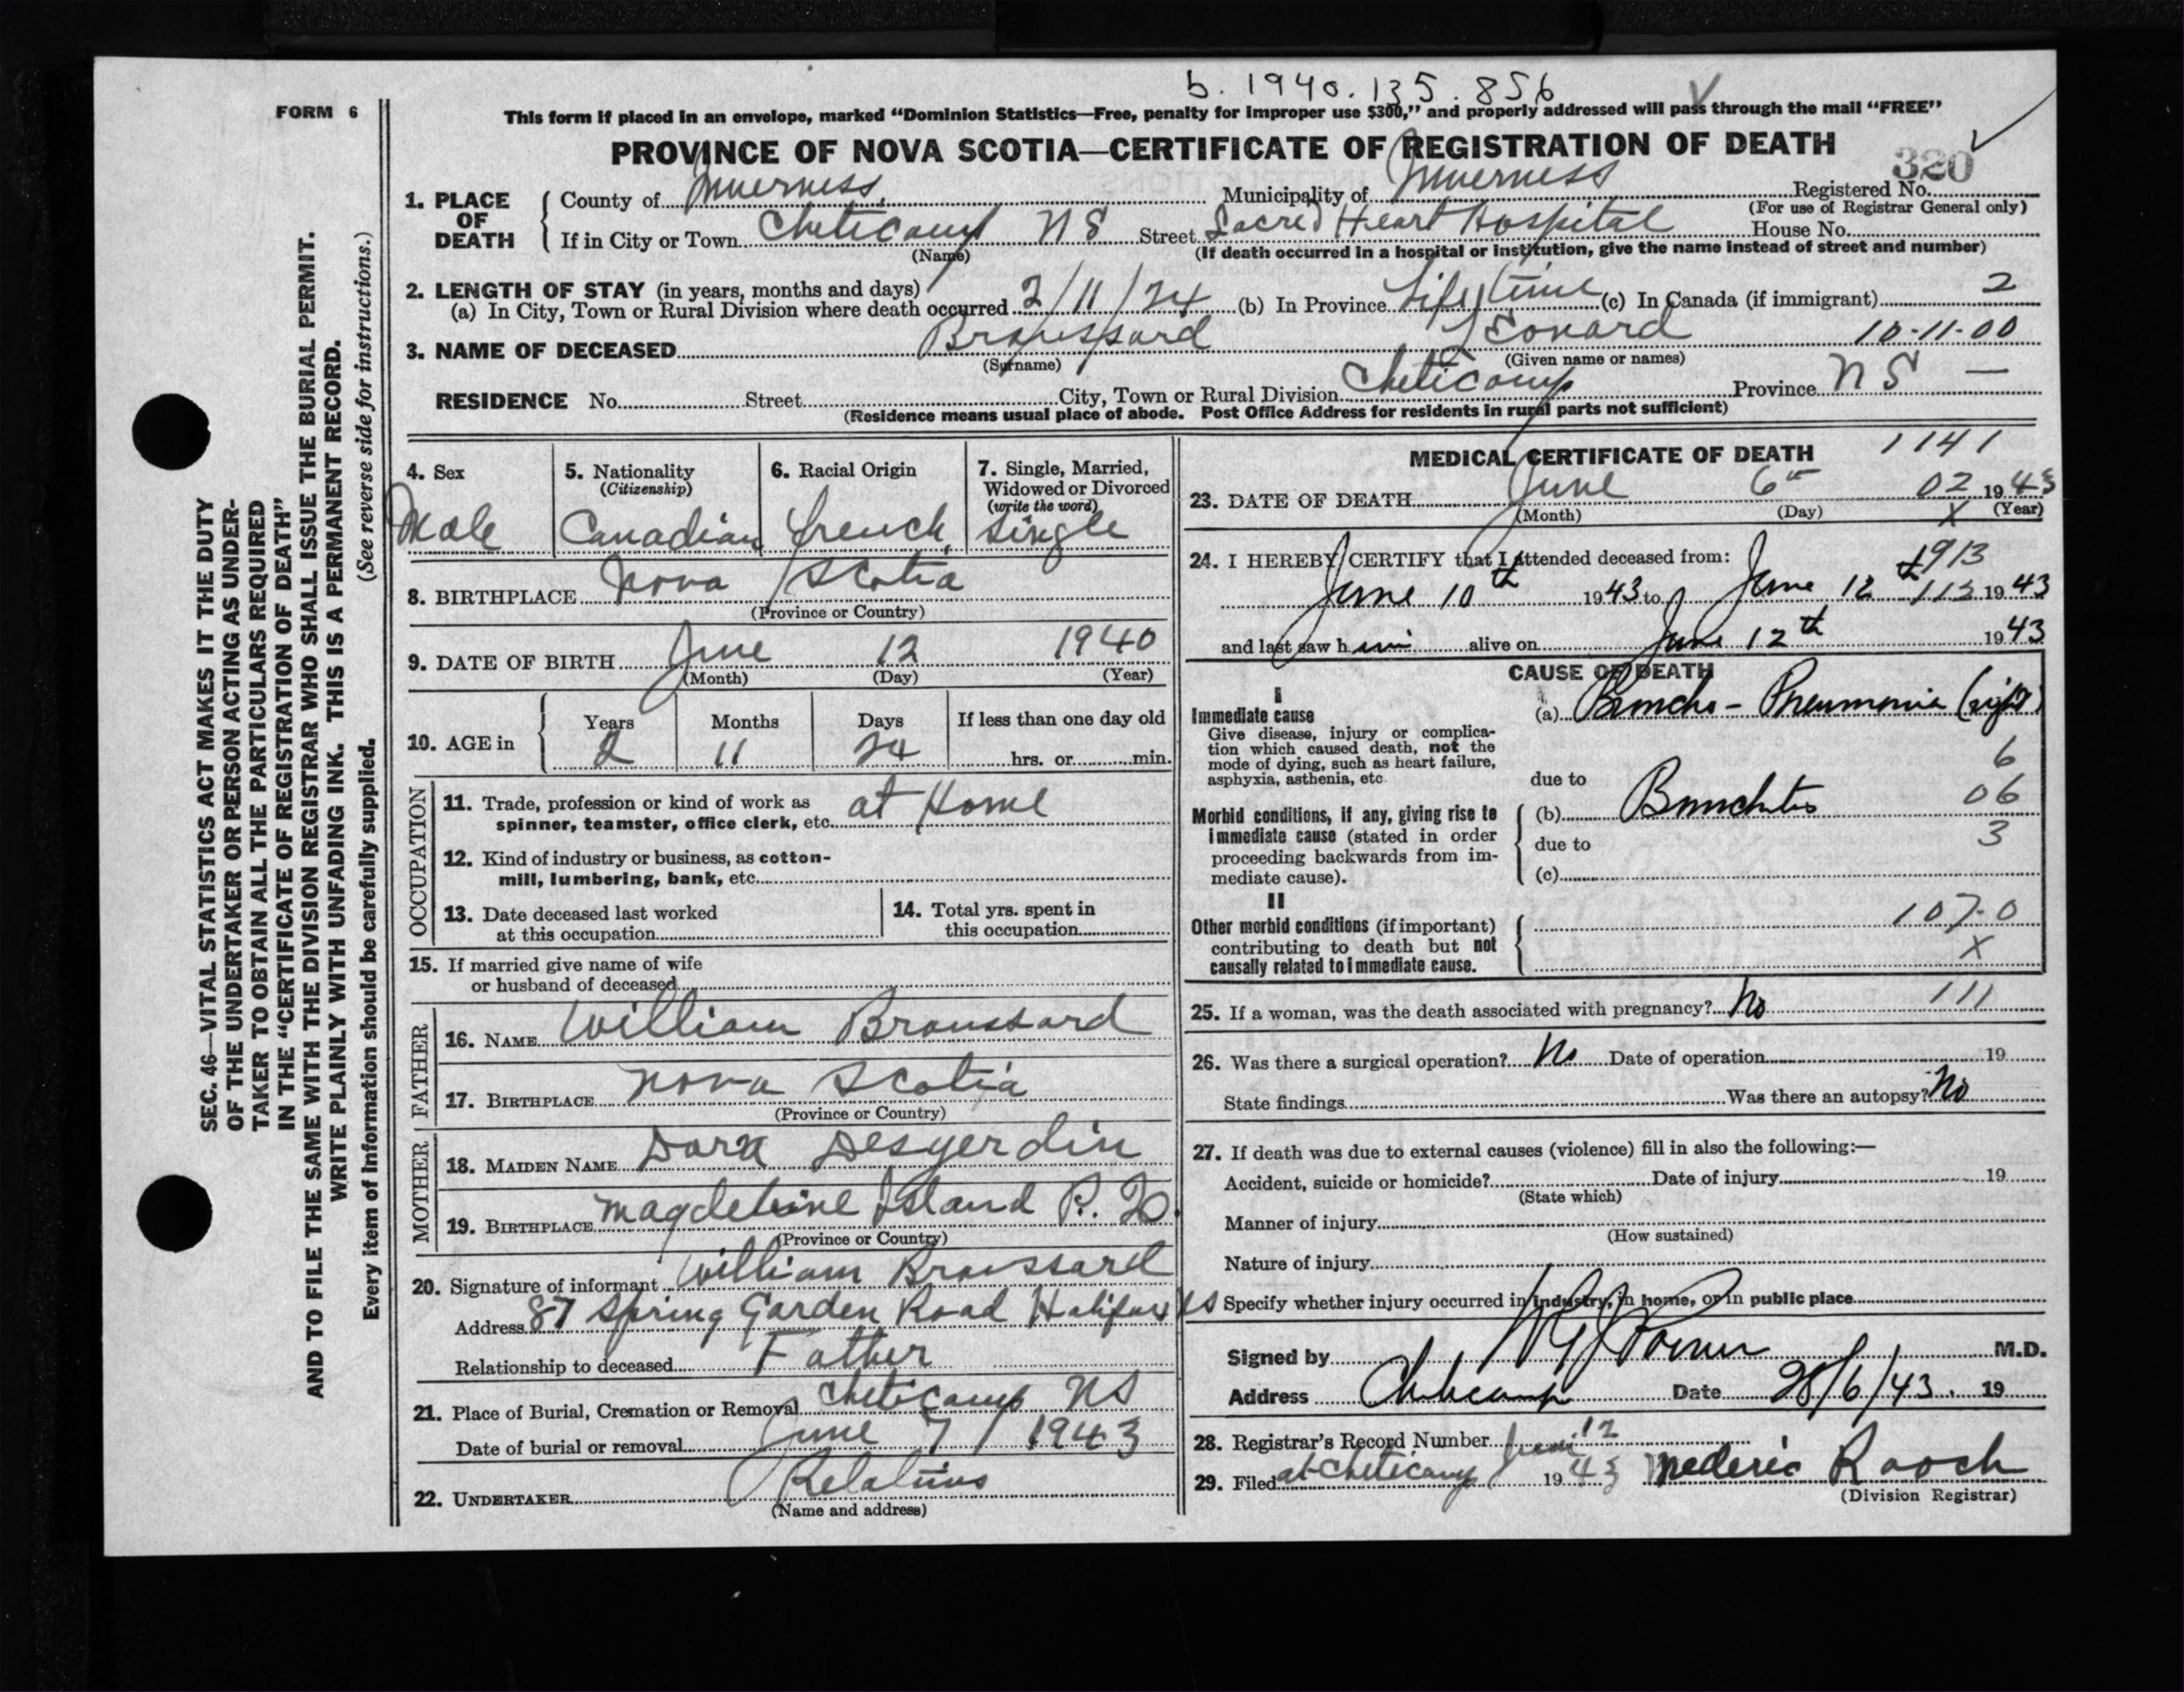 b. 1940. 135. 856
FORM 6
This form if placed in an envelope, marked “Dominion Statistics—Free, penalty for improper use $300,” and properly addressed will pass through the mail “FREE”
PROVINCE OF NOVA SCOTIA—CERTIFICATE OF REGISTRATION OF DEATH
320
1. PLACE OF DEATH
County of Inverness, Municipality of Inverness Registered No.
(For use of Registrar General only)
If in City or Town Cheticamp NS Street Sacred Heart Hospital House No.
(Name) (If death occurred in a hospital or institution, give the name instead of street and number)
2. LENGTH OF STAY (in years, months and days)
(a) In City, Town or Rural Division where death occurred 2/11/24 (b) In Province Lifetime (c) In Canada (if immigrant) 2
3. NAME OF DECEASED Broussard Leonard 10-11-00
(Surname) (Given name or names)
RESIDENCE No. Street City, Town or Rural Division Cheticamp Province NS —
(Residence means usual place of abode. Post Office Address for residents in rural parts not sufficient)
4. Sex
Male
5. Nationality
(Citizenship)
Canadian
6. Racial Origin
French
7. Single, Married,
Widowed or Divorced
(write the word)
Single
8. BIRTHPLACE Nova Scotia
(Province or Country)
9. DATE OF BIRTH June 12 1940
(Month) (Day) (Year)
10. AGE in
Years Months Days If less than one day old
2 11 24 hrs. or min.
OCCUPATION
11. Trade, profession or kind of work as
spinner, teamster, office clerk, etc. at Home
12. Kind of industry or business, as cotton-
mill, lumbering, bank, etc.
13. Date deceased last worked
at this occupation
14. Total yrs. spent in
this occupation
15. If married give name of wife
or husband of deceased
FATHER
16. NAME William Broussard
17. BIRTHPLACE Nova Scotia
(Province or Country)
MOTHER
18. MAIDEN NAME Dora Desgerdin
19. BIRTHPLACE Magdeleine Island P. Q.
(Province or Country)
20. Signature of informant William Broussard
Address 87 Spring Garden Road Halifax NS
Relationship to deceased Father
21. Place of Burial, Cremation or Removal Cheticamp NS
Date of burial or removal June 7 / 1943
22. UNDERTAKER Relatives
(Name and address)
MEDICAL CERTIFICATE OF DEATH 1141
23. DATE OF DEATH June 6th 02 1943
(Month) (Day) X (Year)
24. I HEREBY CERTIFY that I attended deceased from: 1913
June 10th 1943 to June 12 113 1943
and last saw him alive on June 12th 1943
CAUSE OF DEATH
I
Immediate cause (a) Broncho-Pneumonia (right)
Give disease, injury or complica-
tion which caused death, not the
mode of dying, such as heart failure, 6
asphyxia, asthenia, etc. due to
Morbid conditions, if any, giving rise to (b) Bronchitis 06
immediate cause (stated in order
proceeding backwards from im- due to 3
mediate cause). (c)
II
Other morbid conditions (if important) 107-0
contributing to death but not X
causally related to immediate cause.
25. If a woman, was the death associated with pregnancy? No 111
26. Was there a surgical operation? No Date of operation 19
State findings Was there an autopsy? No
27. If death was due to external causes (violence) fill in also the following:—
Accident, suicide or homicide? Date of injury 19
(State which)
Manner of injury
(How sustained)
Nature of injury
Specify whether injury occurred in industry, in home, or in public place
Signed by M.D.
Address Cheticamp Date 28/6/43. 19
28. Registrar's Record Number 12
29. Filed at Cheticamp June 1943 Mederic Rooch
(Division Registrar)
SEC. 46—VITAL STATISTICS ACT MAKES IT THE DUTY
OF THE UNDERTAKER OR PERSON ACTING AS UNDER-
TAKER TO OBTAIN ALL THE PARTICULARS REQUIRED
IN THE “CERTIFICATE OF REGISTRATION OF DEATH”
AND TO FILE THE SAME WITH THE DIVISION REGISTRAR WHO SHALL ISSUE THE BURIAL PERMIT.
WRITE PLAINLY WITH UNFADING INK. THIS IS A PERMANENT RECORD.
(See reverse side for instructions.)
Every item of information should be carefully supplied.